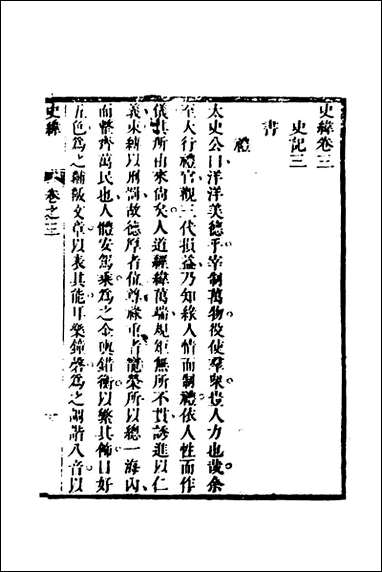 史緯卷三
史記三
書
禮
太史公曰洋洋美德乎宰制萬物役使羣衆豈人力也哉余
至大行禮官觀三代損益乃知緣人情而制禮依人性而作
儀其所由來尚矣人道經緯萬端規矩無所不貫誘進以仁
義束縛以刑罰故德厚者位尊祿重者寵榮所以總一海内
而整齊萬民也人體安駕乘爲之金輿錯衡以繁其飾目好
五色爲之黼黻文章以表其能耳樂鐘磬爲之調諧八音以
史緯
卷之三